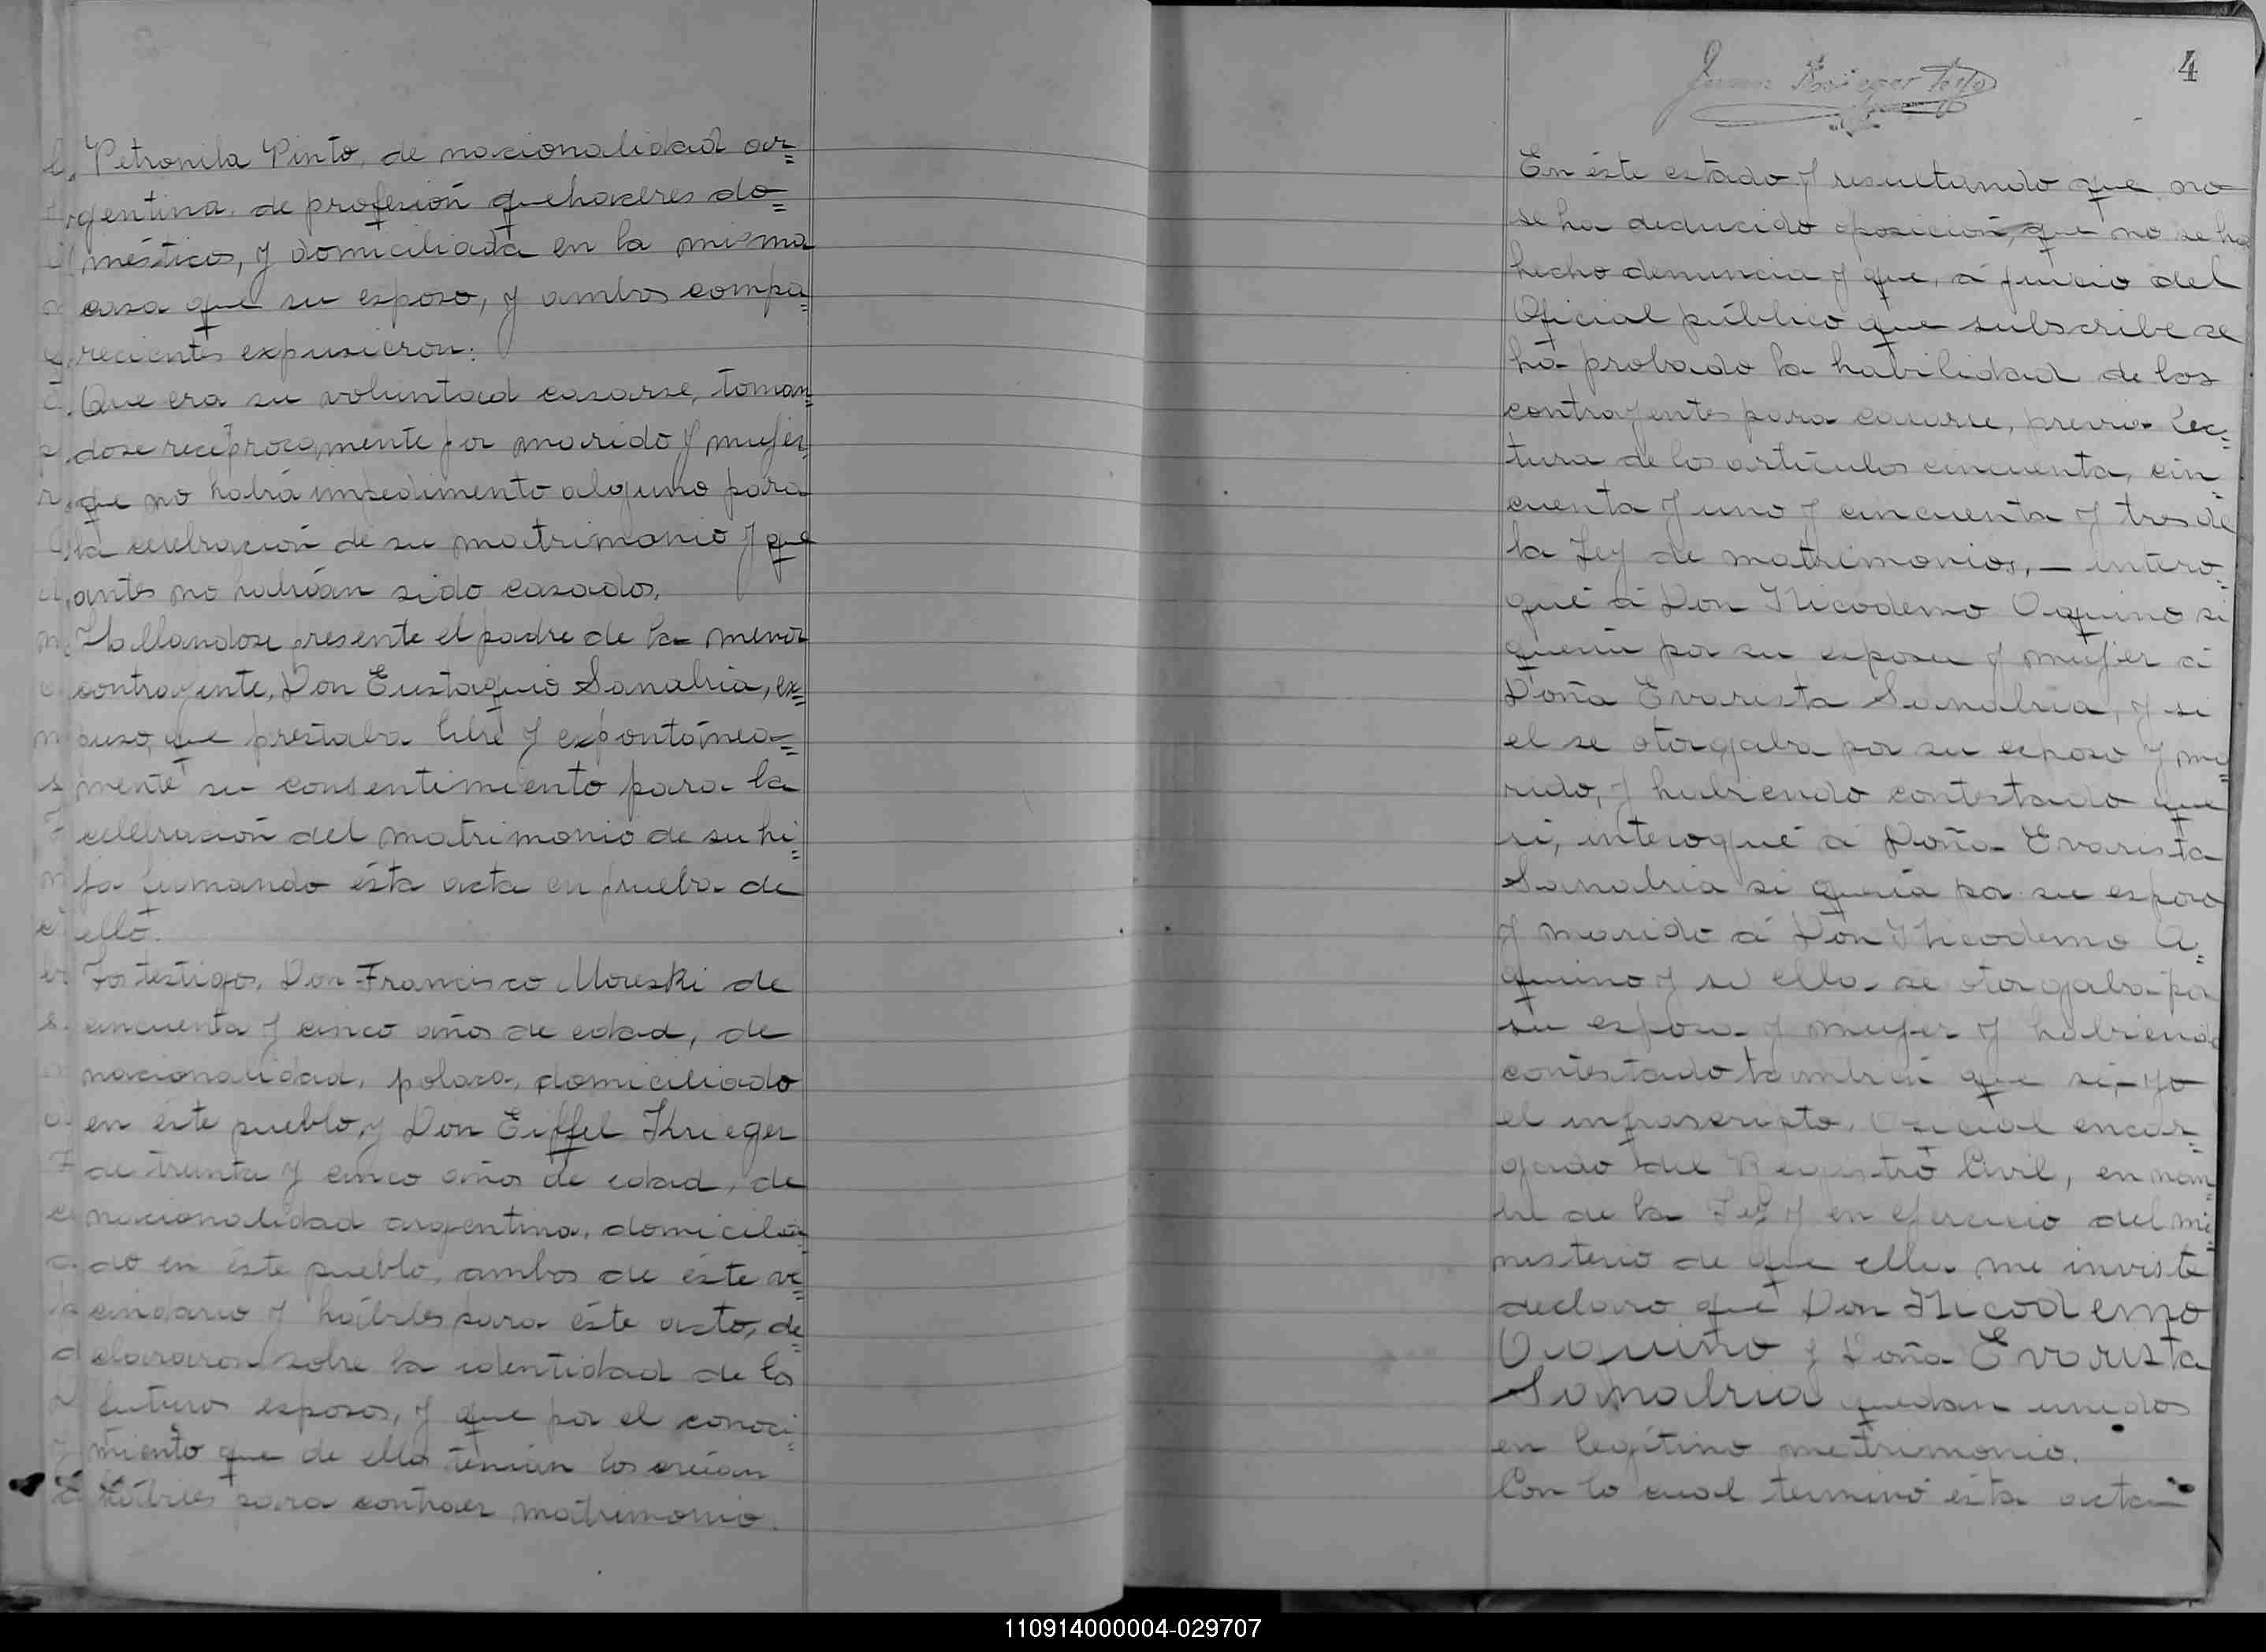 Petronila Pinto, de nacionalidad ar=
gentina, de profesión quehaceres do=
mésticos, y domiciliada en la misma
casa que su esposo, y ambos compa=
recientes expusieron:
Que era su voluntad casarse, toman=
dose recíprocamente por marido y mujer,
que no había impedimento alguno para
la celebración de su matrimonio y que
antes no habían sido casados.
Hallandose presente el padre de la menor
contrayente, Don Eustaquio Sanabria, ex=
puso, que prestaba libre y expontánea=
mente su consentimiento para la
celebración del matrimonio de su hi=
ja firmando ésta acta en prueba de
ello.
Los testigos, Don Francisco Moreski de
cincuenta y cinco años de edad, de
nacionalidad, polaca, domiciliado
en éste pueblo, y Don Eiffel Krieger
de treinta y cinco años de edad, de
nacionalidad argentina, domicilia=
do en éste pueblo, ambos de éste ve=
cindario y hábiles para éste acto, de=
clararon sobre la identidad de los
futuros esposos, y que por el conoci=
miento que de ellos tenían los creían
hábiles para contraer matrimonio.
4
En éste estado y resultando que no
se ha deducido oposición, que no se ha
hecho denuncia y que, á juicio del
Oficial público que subscribe se
há probado la habilidad de los
contrayentes para casarse, previa lec=
tura de los artículos cincuenta, cin=
cuenta y uno y cincuenta y tres de
la Ley de matrimonios, — intero=
gué á Don Nicodemo Aquino si
quería por su esposa y mujer á
Doña Evarista Sanabria, y si
el se otorgaba por su esposo y ma=
rido, y habiendo contestado que
si, interogué á Doña Evarista
Sanabria si quería por su esposo
y marido á Don Nicodemo A=
quino y si ella se otorgaba por
su esposa y mujer y habiendo
contestado también que si, yo
el infrascripto, Oficial encar=
gado del Registro Civil, en nom=
bre de la Ley y en ejercicio del mi=
nisterio de que ella me inviste
declaro que Don Nicodemo
Aquino y Doña Evarista
Sanabria quedan unidos
en legítimo matrimonio.
Con lo cual terminó ésta acta
110914000004-029707